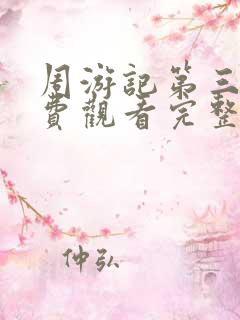 周游記第三
費觀看完整
仲弘